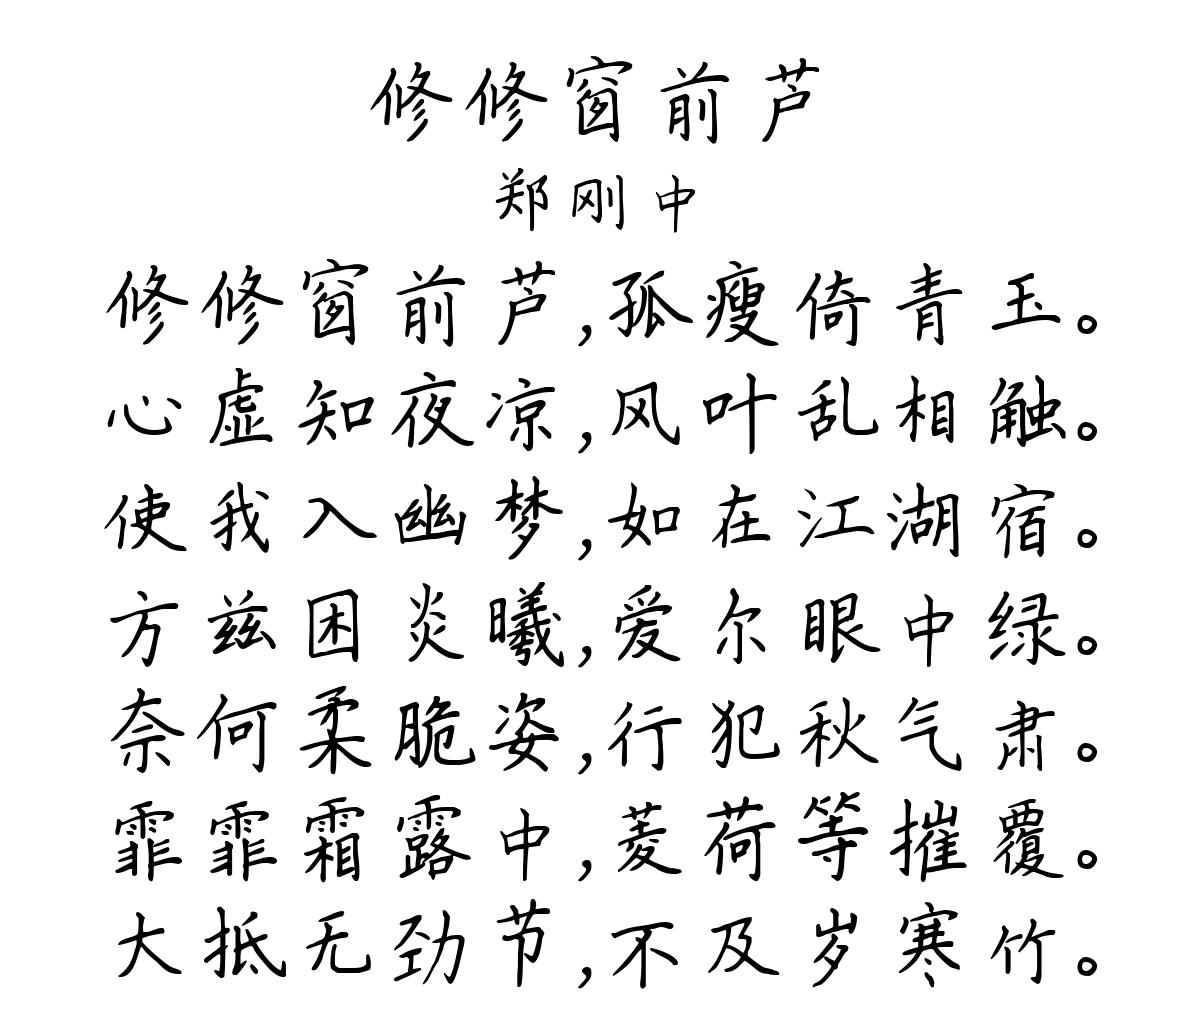 修修窗前芦
郑刚中
修修窗前芦,孤瘦倚青玉。
心虚知夜凉,风叶乱相触。
使我入幽梦,如在江湖宿。
方兹困炎曦,爱尔眼中绿。
奈何柔脆姿,行犯秋气肃。
霏霏霜露中,菱荷等摧覆。
大抵无劲节,不及岁寒竹。